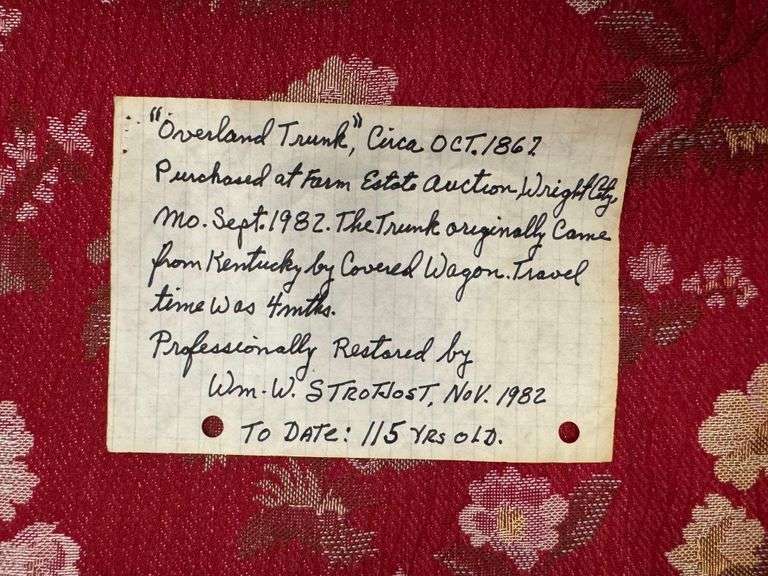 "Overland Trunk", Circa OCT. 1867
Purchased at Farm Estate Auction, Wright City,
Mo. Sept. 1982. The Trunk originally Came
from Kentucky by Covered Wagon. Travel
time was 4 mths.
Professionally Restored by
Wm. W. STROTJOST, NOV. 1982
TO DATE: 115 YRS OLD.